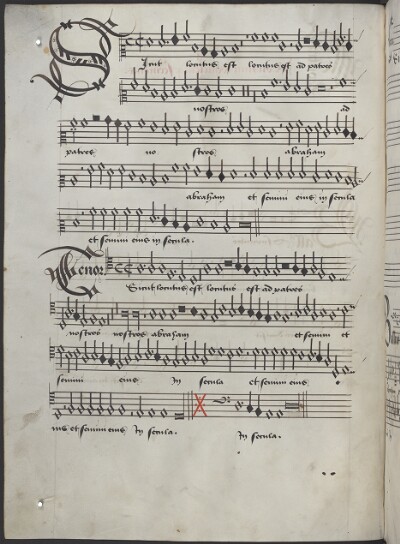 Sicut locutus est locutus est ad patres
nostros ad
patres no stros abraham
abraham et semini eius in secula
et semini eius in secula.
Tenor
Sicut locutus est locutus est ad patres
nostros nostros abraham et semini et
semini eius In secula et semini eius
ius et semini eius In secula. In secula.